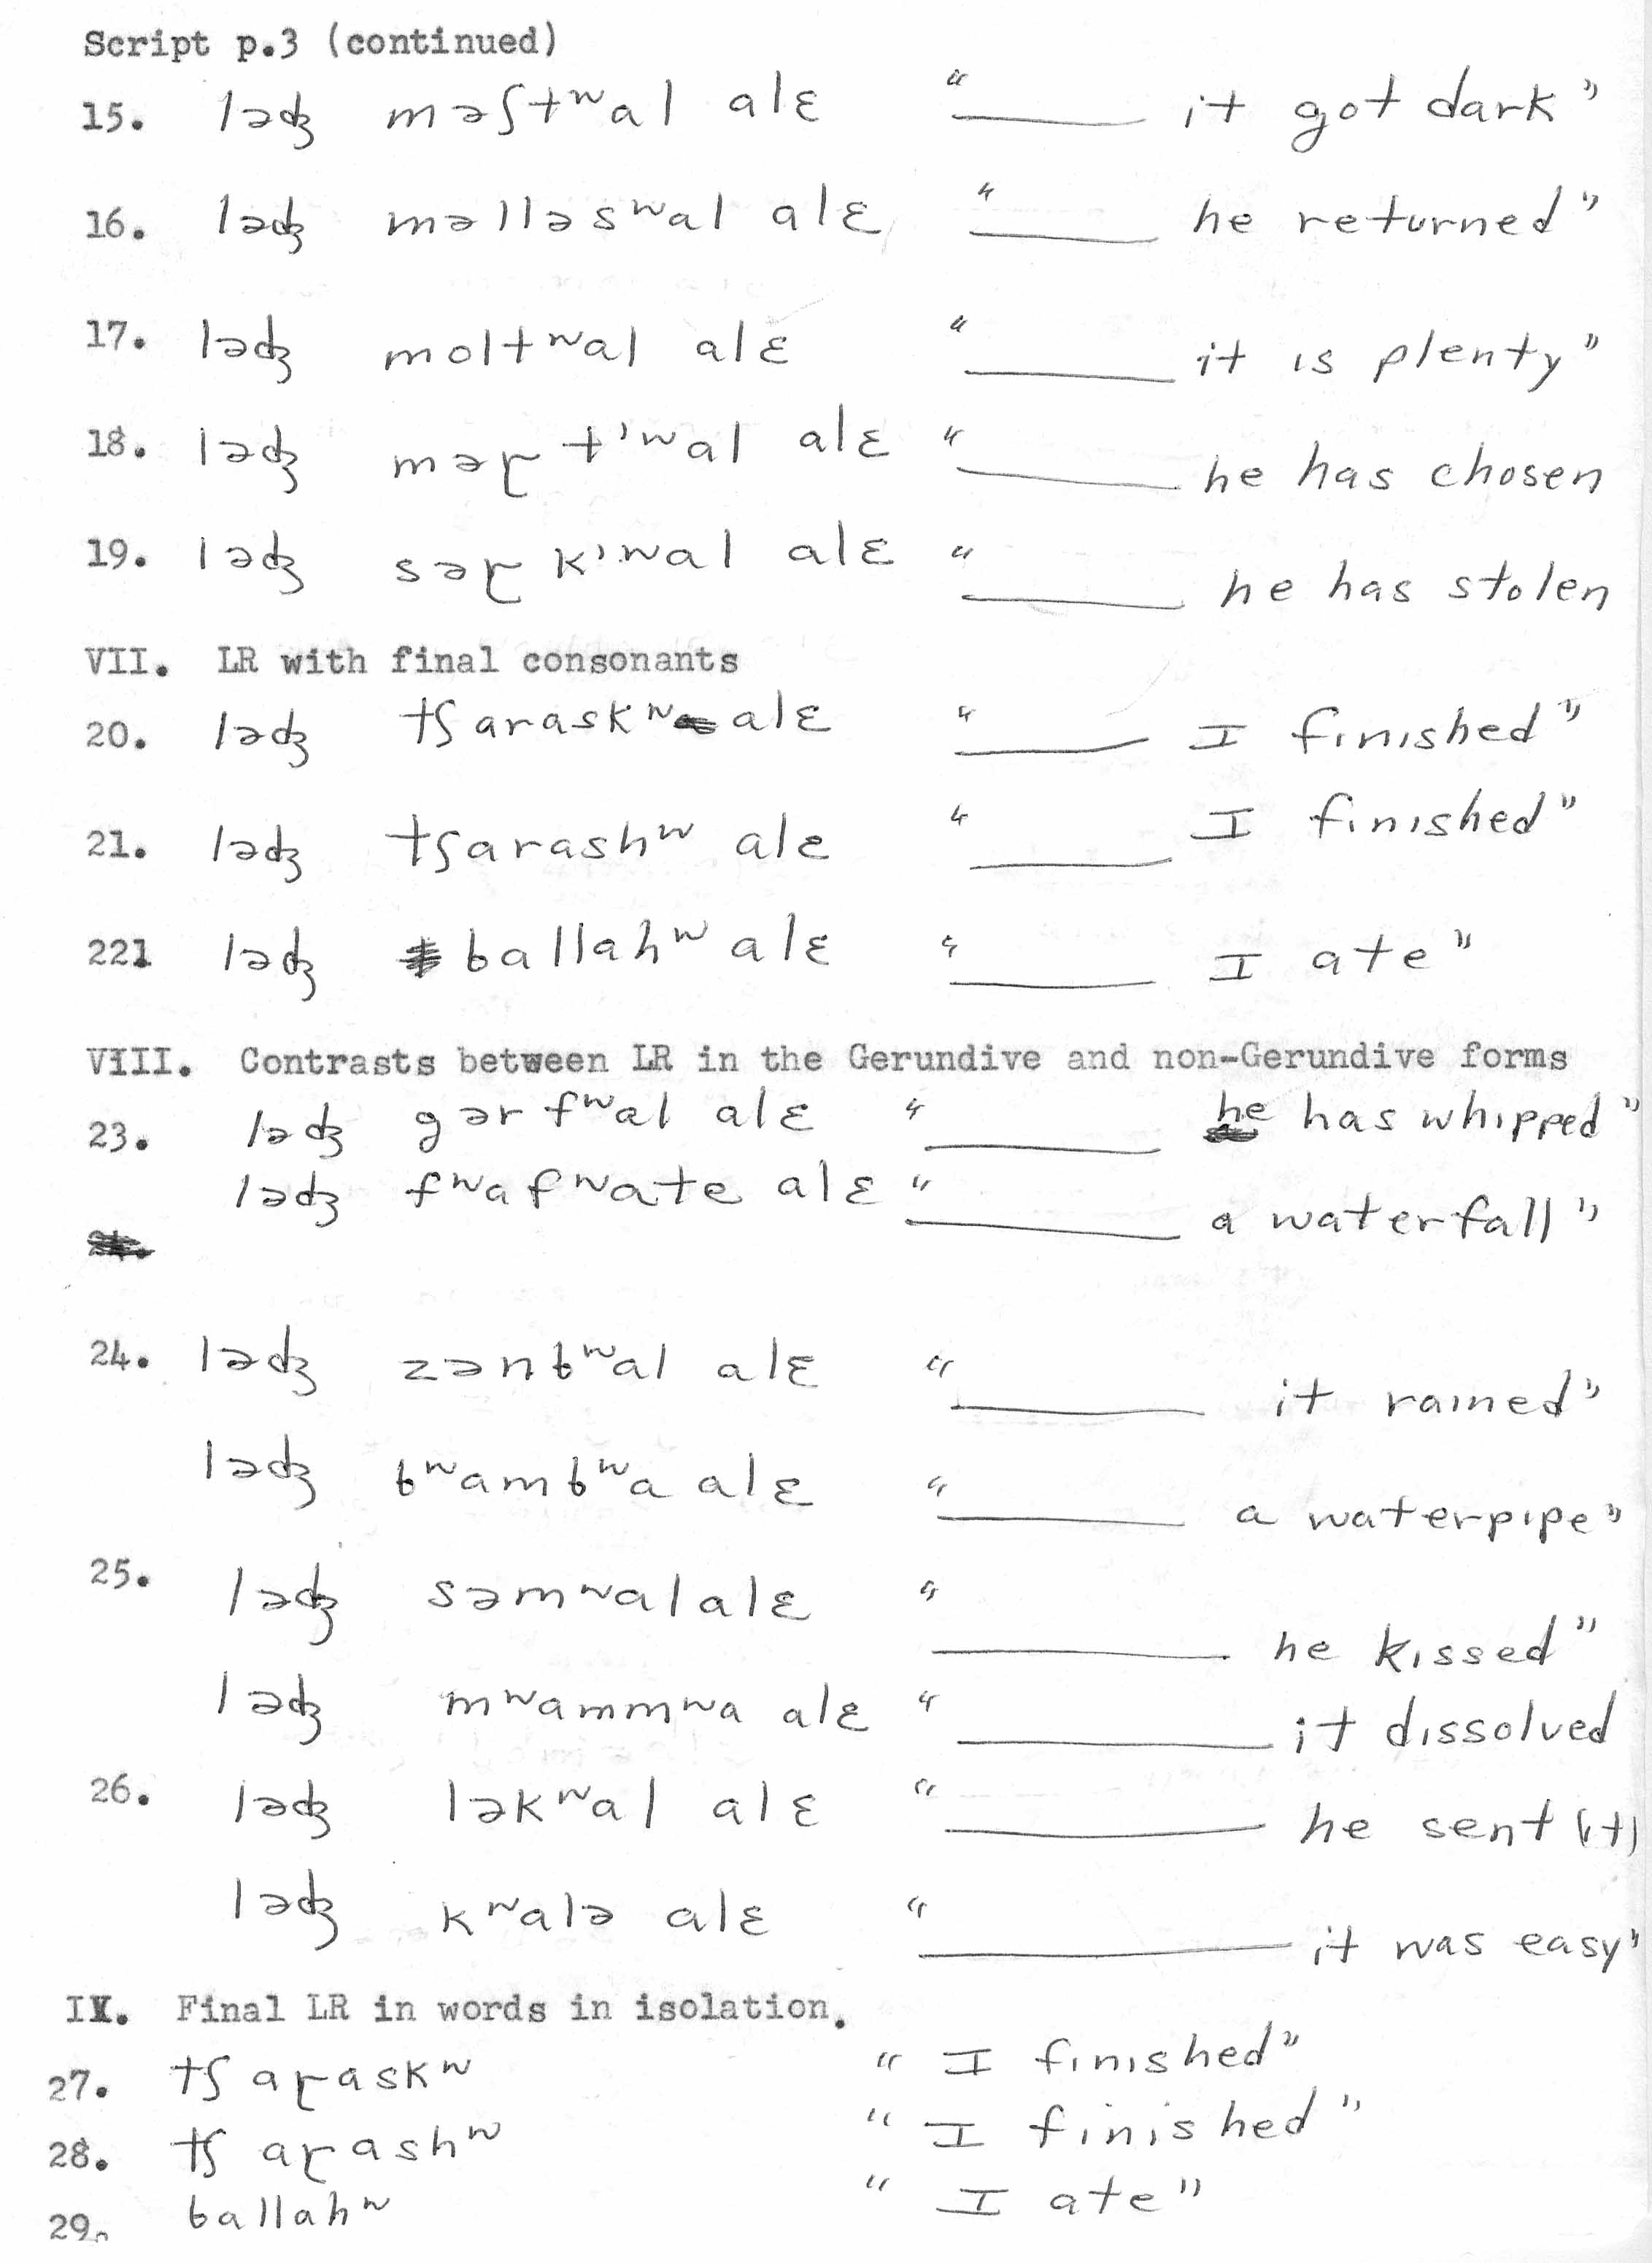 Script p.3 (continued)
15. ləʤ məʃtʷal alɛ “_____ it got dark”
16. ləʤ məlləsʷal alɛ “_____ he returned”
17. ləʤ moltʷal alɛ “_____ it is plenty”
18. ləʤ məɽt'ʷal alɛ “_____ he has chosen
19. ləʤ səɽk'ʷal alɛ “_____ he has stolen
VII. LR with final consonants
20. ləʤ ʧaraskʷ alɛ “_____ I finished”
21. ləʤ ʧarashʷ ale “_____ I finished”
221 ləʤ ballahʷ alɛ “_____ I ate”
VIII. Contrasts between LR in the Gerundive and non-Gerundive forms
23. ləʤ gərfʷal alɛ “_____ he has whipped”
ləʤ fʷafʷate alɛ “_____ a waterfall”
24. ləʤ zənbʷal alɛ “_____ it rained”
ləʤ bʷambʷa alɛ “_____ a waterpipe”
25. ləʤ səmʷal alɛ “_____ he kissed”
ləʤ mʷammʷa alɛ “_____ it dissolved
26. ləʤ ləkʷal alɛ “_____ he sent (it)
ləʤ kʷalə alɛ “_____ it was easy”
IX. Final LR in words in isolation.
27. ʧaɽaskʷ “I finished”
28. ʧaɽashʷ “I finished”
29. ballahʷ “I ate”